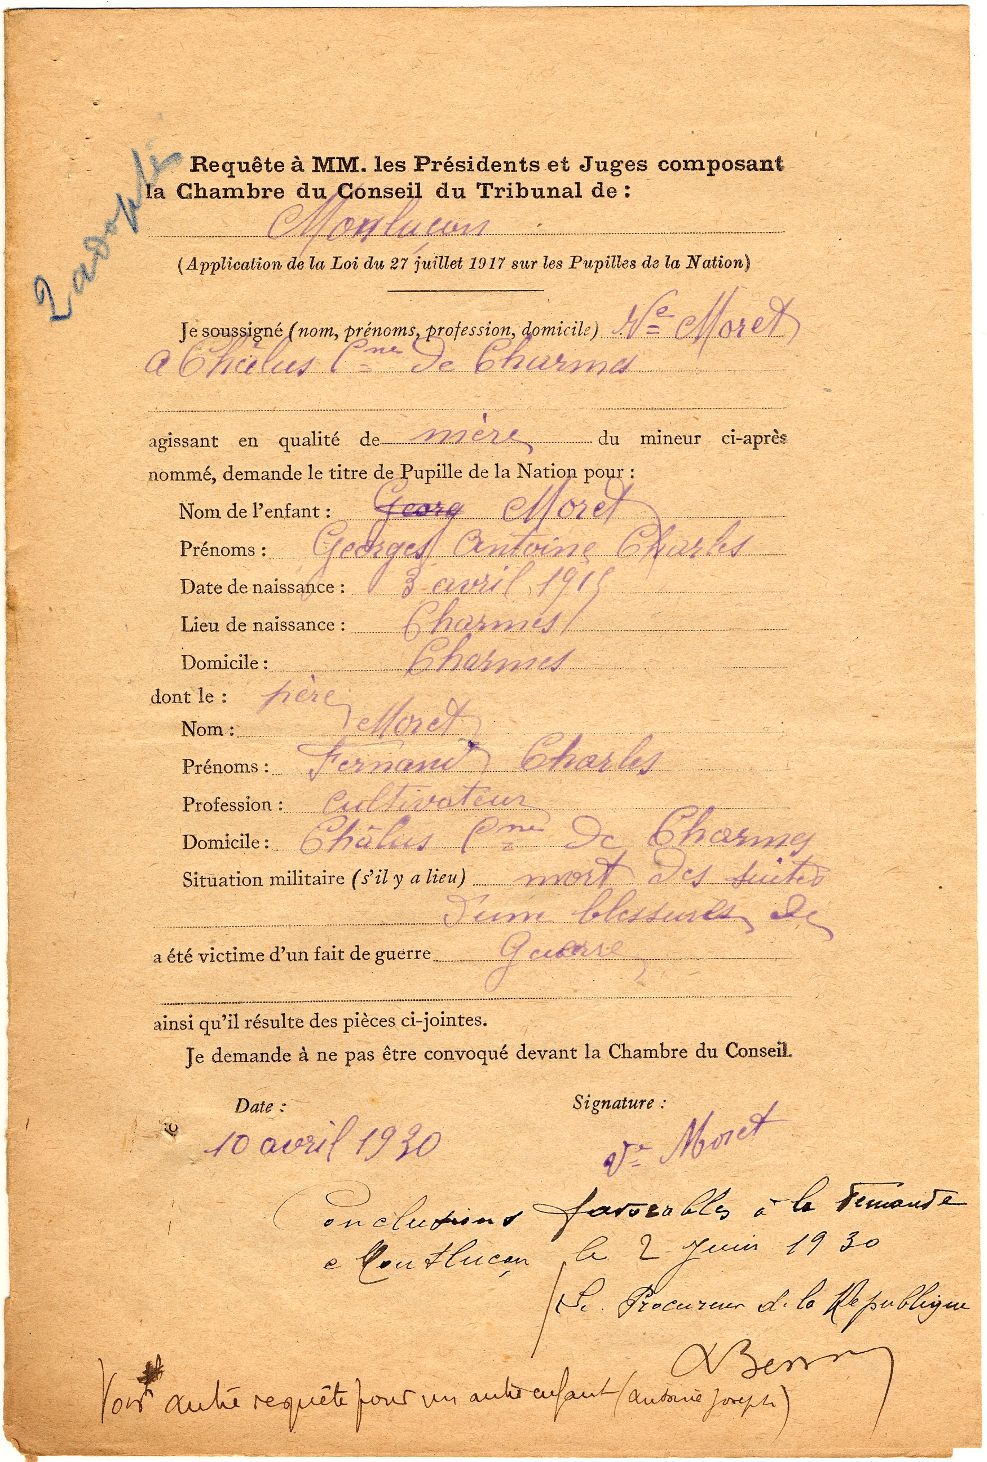 2 adoptés
Requête à MM. les Présidents et Juges composant
la Chambre du Conseil du Tribunal de :
Monluçon
(Application de la Loi du 27 juillet 1917 sur les Pupilles de la Nation)
Je soussigné (nom, prénoms, profession, domicile) Ve Moret
a Chalus Cne de Charmes
agissant en qualité de mère du mineur ci-après
nommé, demande le titre de Pupille de la Nation pour :
Nom de l'enfant : Georg Moret
Prénoms : Georges Antoine Charles
Date de naissance : 3 avril 1915
Lieu de naissance : Charmes
Domicile : Charmes
dont le : père
Nom : Moret
Prénoms : Fernand Charles
Profession : cultivateur
Domicile : Châlus Cne de Charmes
Situation militaire (s'il y a lieu) mort des suites
d'une blessures de
a été victime d'un fait de guerre Guerre
ainsi qu'il résulte des pièces ci-jointes.
Je demande à ne pas être convoqué devant la Chambre du Conseil.
Date : Signature :
10 avril 1930 Ve Moret
Conclusions favorables à la demande
a Montluçon le 2 Juin 1930
Le Procureur de la République
Voir autre requête pour un autre enfant (Antoine Joseph)